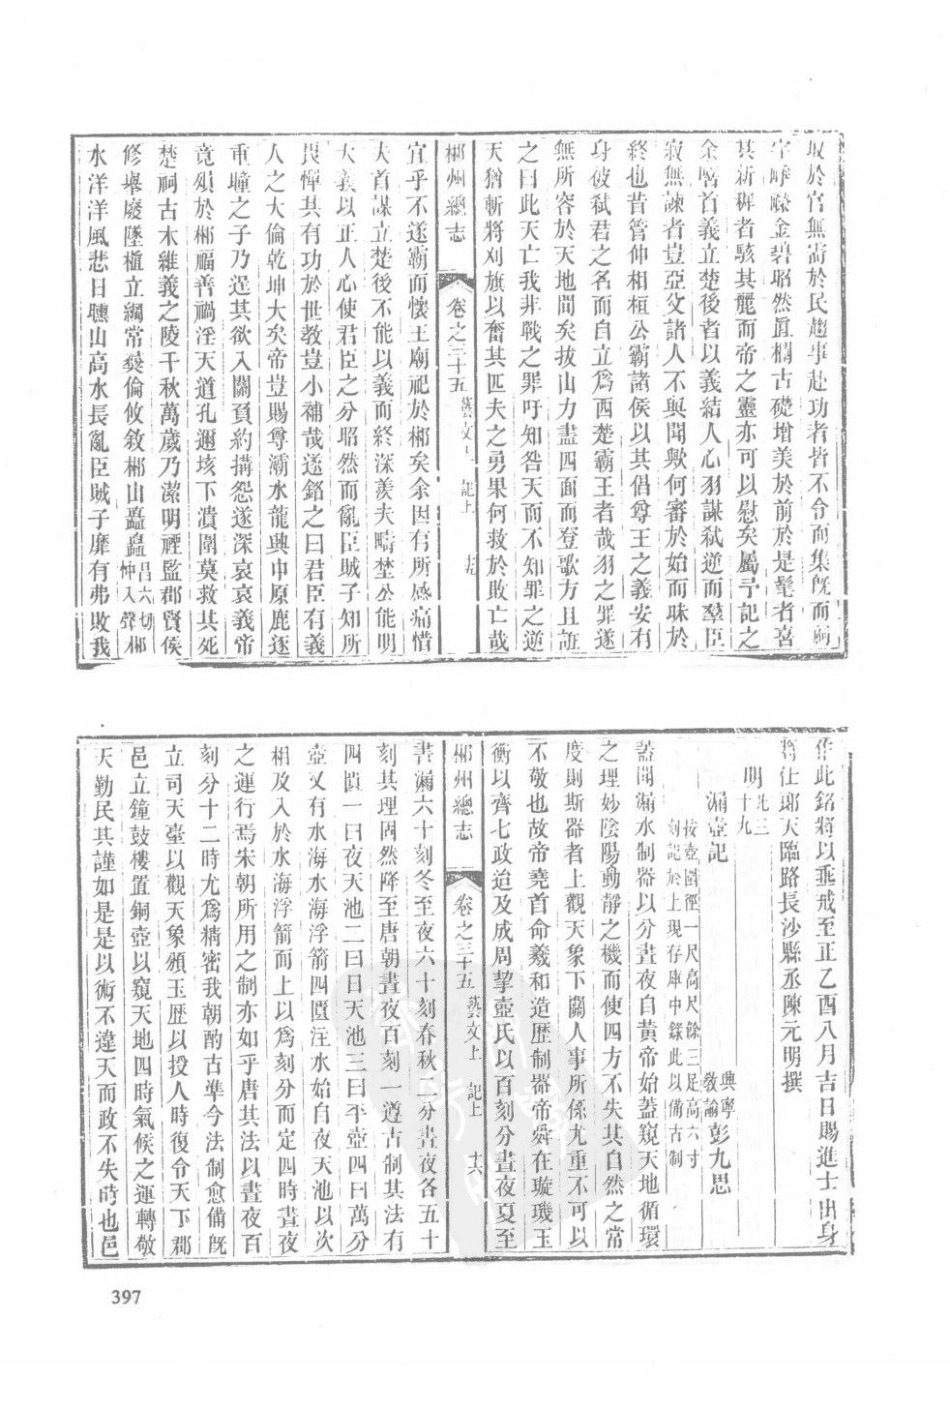 取於官無斂於民趨事赴功者皆不令而集旣而祠
宇崢嶸金碧昭然眞櫚古礎增美於前於是髦者喜
其新穉者駭其麗而帝之靈亦可以慰矣屬予記之
余嘻首義立楚後者以義結人心羽謀弒逆而羣臣
寂無諫者豈亞父諸人不與聞歟何審於始而昧於
終也昔管仲相桓公霸諸侯以其倡尊王之義安有
身彼弒君之名而自立爲西楚霸王者哉羽之罪遂
無所容於天地間矣拔山力盡四面而登歌方且誑
之曰此天亡我非戰之罪吁知咎天而不知罪之逆
天猶斬將刈旗以奮其匹夫之勇果何救於敗亡哉
郴州總志 卷之三十五 藝文上 記上
宜乎不遂霸而懷王廟祀於郴矣余因有所感痛惜
夫首謀立楚後不能以義而終深羨夫疇埜公能明
大義以正人心使君臣之分昭然而亂臣賊子知所
畏憚其有功於世教豈小補哉遂銘之曰君臣有義
人之大倫乾坤大矣帝豈賜尊灞水龍興中原鹿逐
重瞳之子乃逞其欲入關負約搆怨遂深哀哀義帝
竟殞於郴福善禍淫天道孔邇垓下潰圍莫救其死
楚祠古木維義之陵千秋萬歲乃潔明禋監郡賢侯
修舉廢墜植立綱常彜倫攸敘郴山矗矗昌六切仲入聲郴
水洋洋風悲日曛山高水長亂臣賊子靡有弗敗我
作此銘將以垂戒至正乙酉八月吉日賜進士出身
將仕郎天臨路長沙縣丞陳元明撰
明
漏壺記 興寧教諭彭九思
按壺圍徑一尺高尺餘三足高六寸
刻記於上現存庫中錄此以備古制
蓋聞漏水制器以分晝夜自黄帝始蓋窺天地循環
之理妙陰陽動靜之機而使四方不失其自然之常
度則斯器者上觀天象下關人事所係尤重不可以
不敬也故帝堯首命羲和造歷制器帝舜在璇璣玉
衡以齊七政迨及成周挈壺氏以百刻分晝夜夏至
郴州總志 卷之三十五 藝文上 記上 十六
晝漏六十刻冬至夜六十刻春秋二分晝夜各五十
刻其理固然降至唐朝晝夜百刻一遵古制其法有
四匱一曰夜天池二曰日天池三曰平壺四曰萬分
壺又有水海水海浮箭四匱注水始自夜天池以次
相及入於水海浮箭而上以爲刻分而定四時晝夜
之運行焉宋朝所用之制亦如乎唐其法以晝夜百
刻分十二時尤爲精密我朝酌古準今法制愈備旣
立司天臺以觀天象頒玉歷以授人時復令天下郡
邑立鐘鼓樓置銅壺以窺天地四時氣候之運轉敬
天勤民其謹如是是以術不違天而政不失時也邑
397